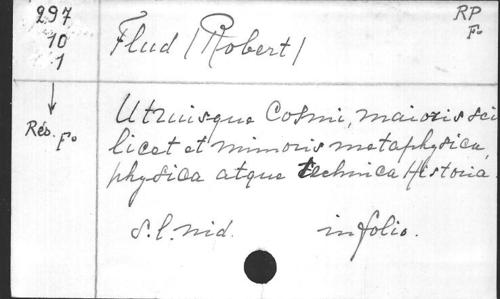 297
10
1
Rés. Fo
Flud (Robert)
RP
Fo
Utruisque Cosmi, maioris sci
licet et minoris metaphysica,
physica atque technica Historia.
s.l.nid. in folio.